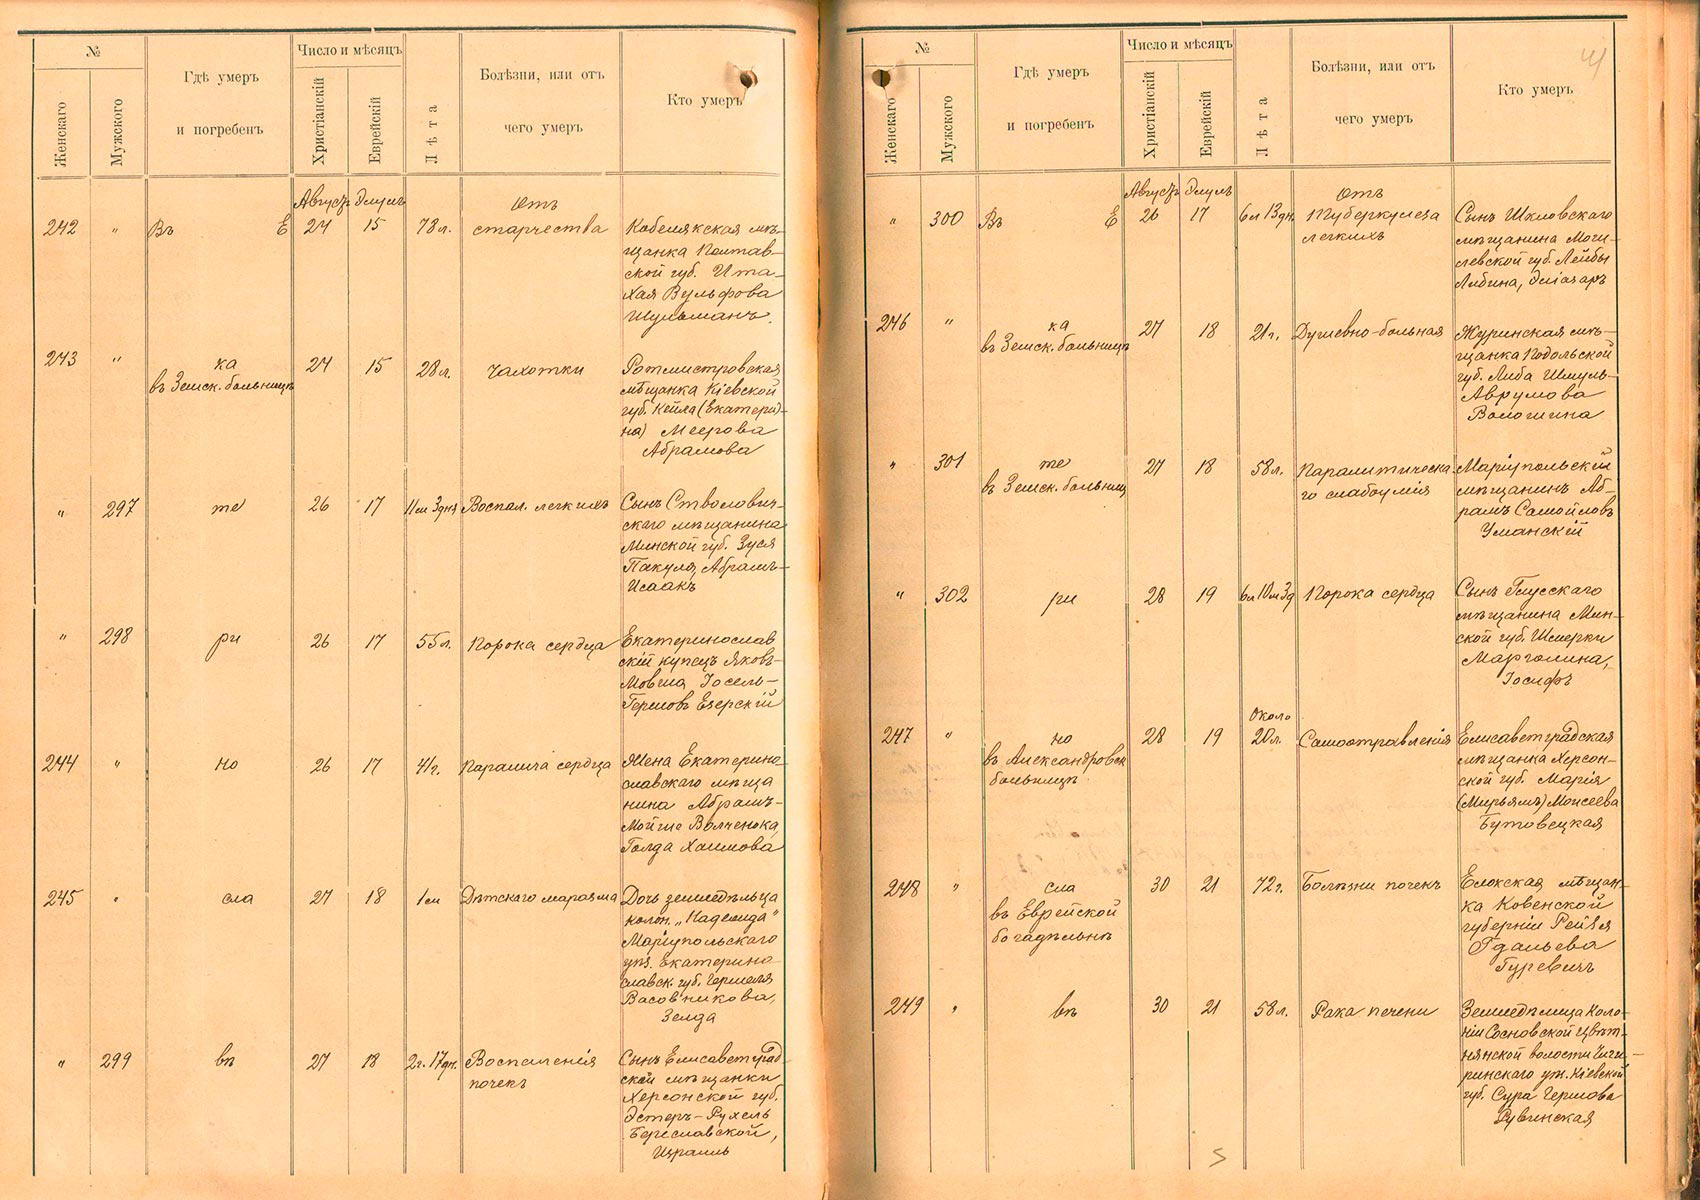 №
Женскаго
Мужского
Гдѣ умеръ
и погребенъ
Число и мѣсяцъ
Христіанскій
Еврейскій
Лѣта
Болѣзни, или отъ
чего умеръ
Кто умеръ
Августъ Элулъ
242 " Въ Е 24 15 78л.
Отъ
старчества
Кобелякская мѣ-
щанка Полтав-
ской губ. Ита-
Хая Вульфова
Шульманъ.
243 " ка
въ Земск. больницѣ
24 15 28л. Чахотки
Ротмистровская
мѣщанка Кіевской
губ. Кейла (Екатери-
на) Меерова
Абрамова
" 297 те 26 17 11м 3дня Воспал. легкихъ
Сынъ Стволович-
скаго мѣщанина
Минской губ. Зуся
Пакуля, Абрамъ-
Исаакъ
" 298 ри 26 17 55л. Порока сердца
Екатеринослав
скій купецъ Яковъ-
Мовша Іосель-
Гершовъ Езерскій
244 " но 26 17 41г. Паралича сердца
Жена Екатерино
славскаго мѣща
нина Абрамъ-
Мойше Волченока,
Голда Хаимова
245 " сла 27 18 1м Дѣтскаго маразма
Дочь земледѣльца
колон. „Надежда"
Маріупольскаго
уѣз. Екатерино
славск. губ. Гершеля
Васовникова,
Зелда
" 299 въ 27 18 2г. 17дн. Воспаленія
почекъ
Сынъ Елисаветград
ской мѣщанки
Херсонской губ.
Эстеръ-Рухель
Береславской,
Израиль
№
Женскаго
Мужского
Гдѣ умеръ
и погребенъ
Число и мѣсяцъ
Христіанскій
Еврейскій
Лѣта
Болѣзни, или отъ
чего умеръ
Кто умеръ
Августъ Элулъ
" 300 Въ Е 26 17 6л 13дн.
Отъ
Туберкулеза
легкихъ
Сынъ Шкловскаго
мѣщанина Моги-
левской губ. Лейбы
Либина, Эліазаръ
246 " ка
въ Земск. больницѣ
27 18 21г. Душевно-больная
Журинская мѣ-
щанка Подольской
губ. Либа Шмуль-
Аврумова
Волошина
" 301 те
въ Земск. больниц
27 18 58л. Паралитическа
го слабоумія
Маріупольскій
мѣщанинъ Аб-
рамъ Самойловъ
Уманскій
" 302 ри 28 19 6л 10м 3д Порока сердца
Сынъ Глусскаго
мѣщанина Мин-
ской губ. Шмерки
Марголина,
Іосифъ
247 " но
въ Александровск
больницѣ
28 19
Около
20л.
Самоотравленія
Елисаветградская
мѣщанка Херсон-
ской губ. Марія
(Мирьямъ) Моисеева
Бутовецкая
248 " сла
въ Еврейской
богадѣльнѣ
30 21 72г. Болѣзни почекъ
Елокская мѣщан-
ка Ковенской
губерніи Рейзя
Гдальева
Гуревичъ
249 " въ 30 21 58л. Рака печени
Земледѣлица Коло-
ніи Сосновской Цвѣт-
нянской волости Чиги-
ринскаго уѣ. Кіевской
губ. Сура Гершова
Рувинская